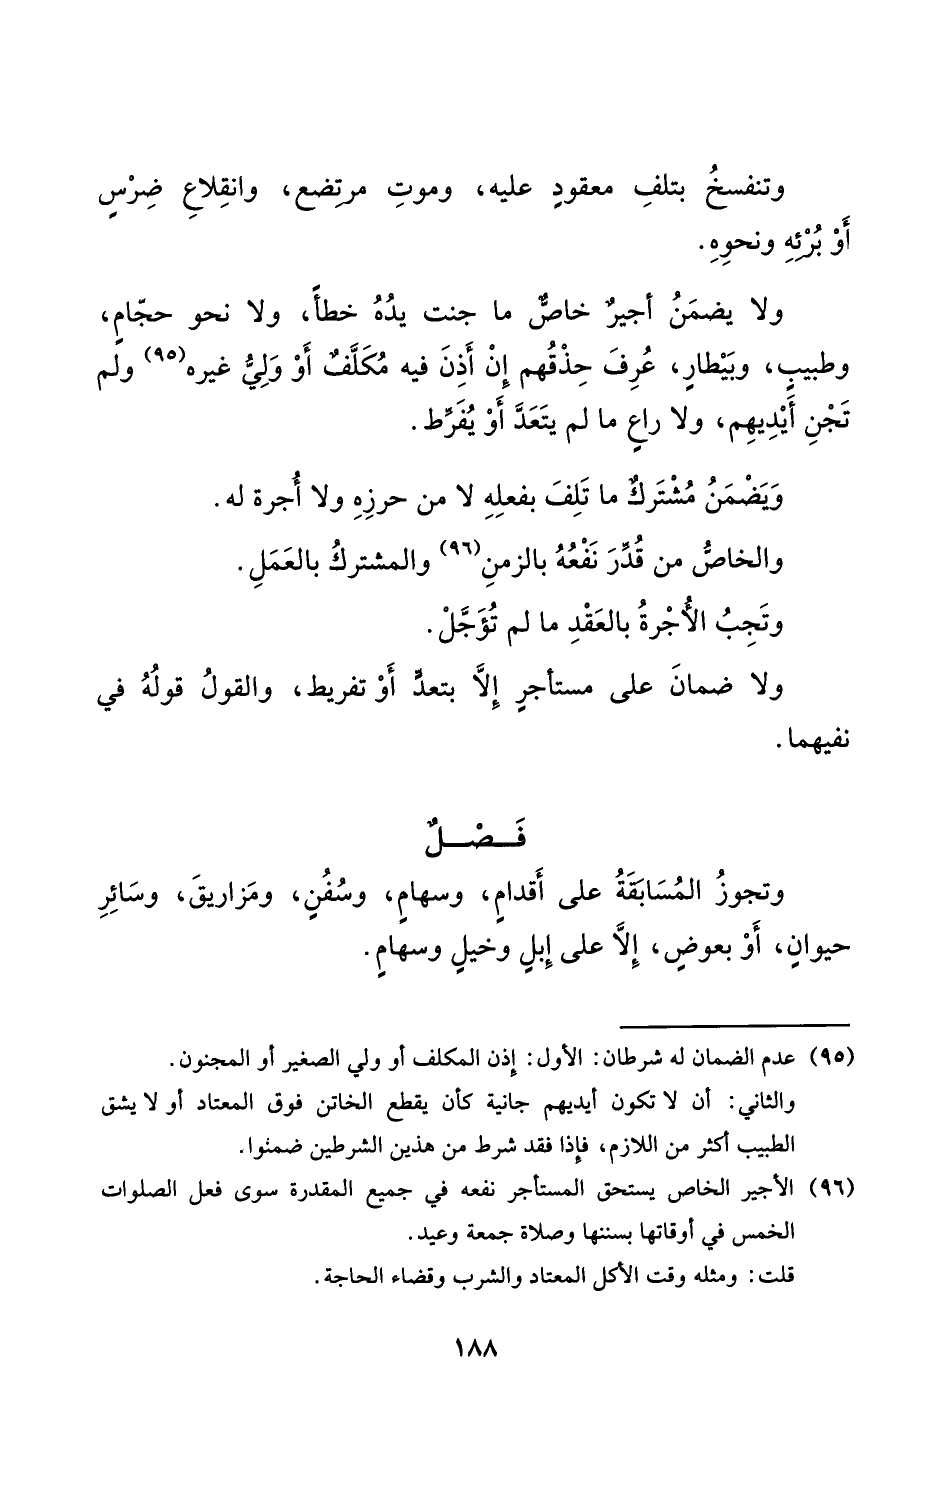 وتنفسخُ بتلفِ معقودٍ عليه، وموتِ مرتِضع، وانقِلاعِ ضِرْسٍ
أَوْ بُرْئِهِ ونحوِهِ.
ولا يضمَنُ أجيرٌ خاصٌّ ما جنت يدُهُ خطأً، ولا نحو حجّامٍ،
وطبيبٍ، وبَيْطارٍ، عُرِفَ حِذْقُهم إِنْ أَذِنَ فيه مُكَلَّفٌ أَوْ وَلِيُّ غيره(٩٥) ولم
تَجْنِ أَيْدِيهِم، ولا راعٍ ما لم يتَعَدَّ أَوْ يُفَرِّط.
وَيَضْمَنُ مُشْتَركٌ ما تَلِفَ بفعلِهِ لا من حرزِهِ ولا أُجرة له.
والخاصُّ من قُدِّرَ نَفْعُهُ بالزمنِ(٩٦) والمشتركُ بالعَمَلِ.
وتَجِبُ الأُجْرةُ بالعَقْدِ ما لم تُؤَجَّلْ.
ولا ضمانَ على مستأجرٍ إِلاَّ بتعدٍّ أَوْ تفريط، والقولُ قولُهُ في
نفيهما.
فَـصْـلٌ
وتجوزُ المُسَابَقَةُ على أَقدامٍ، وسهامٍ، وسُفُنٍ، ومَزاريقَ، وسَائِرِ
حيوانٍ، أَوْ بعوضٍ، إِلاَّ على إِبلٍ وخيلٍ وسهامٍ.
(٩٥) عدم الضمان له شرطان: الأول: إذن المكلف أو ولي الصغير أو المجنون.
والثاني: أن لا تكون أيديهم جانية كأن يقطع الخاتن فوق المعتاد أو لا يشق
الطبيب أكثر من اللازم، فإذا فقد شرط من هذين الشرطين ضمنوا.
(٩٦) الأجير الخاص يستحق المستأجر نفعه في جميع المقدرة سوى فعل الصلوات
الخمس في أوقاتها بسننها وصلاة جمعة وعيد.
قلت: ومثله وقت الأكل المعتاد والشرب وقضاء الحاجة.
١٨٨